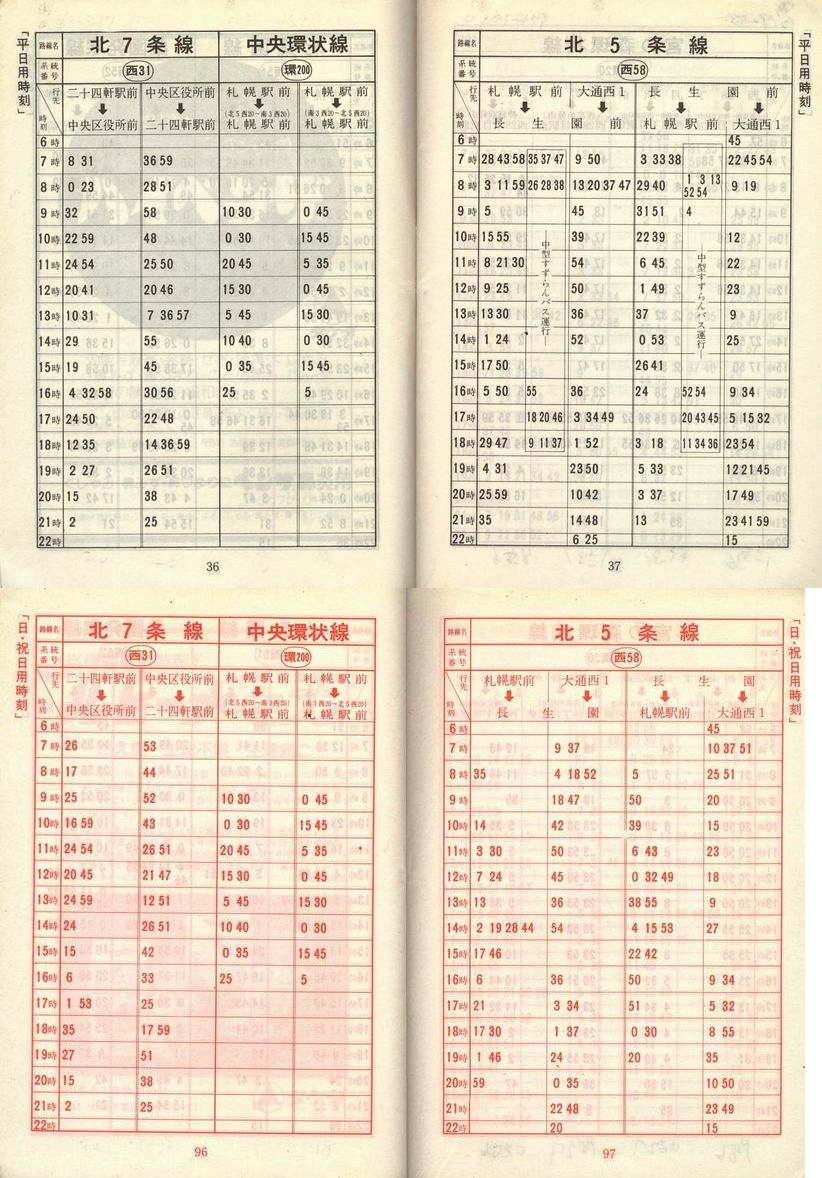 「平日用時刻」
路線名 北7条線 中央環状線
系統番号 西31 環200
行先 時刻 二十四軒駅前 中央区役所前 札幌駅前 札幌駅前
(北5西20~南3西20) (南3西20~北5西20)
中央区役所前 二十四軒駅前 札幌駅前 札幌駅前
6時
7時 8 31 36 59
8時 0 23 28 51
9時 32 58 10 30 0 45
10時 22 59 48 0 30 15 45
11時 24 54 25 50 20 45 5 35
12時 20 41 20 46 15 30 0 45
13時 10 31 7 36 57 5 45 15 30
14時 29 55 10 40 0 30
15時 19 45 0 35 15 45
16時 4 32 58 30 56 25 5
17時 24 50 22 48
18時 12 35 14 36 59
19時 2 27 26 51
20時 15 38
21時 2 25
22時
36
「平日用時刻」
路線名 北5条線
系統番号 西58
行先 時刻 札幌駅前 大通西1 長生園前
長生園前 札幌駅前 大通西1
6時 45
7時 28 43 58 35 37 47 9 50 3 33 38 22 45 54
8時 3 11 59 26 28 38 13 20 37 47 29 40 1 3 13 52 54 9 19
9時 5 45 31 51 4
10時 15 55 39 22 39 12
11時 8 21 30 54 6 45 22
12時 9 25 50 1 49 23
13時 13 30 36 37 9
14時 1 24 52 0 53 25
15時 17 50 26 41
16時 5 50 55 36 24 52 54 9 34
17時 18 20 46 3 34 49 20 43 45 5 15 32
18時 29 47 9 11 37 1 52 3 18 11 34 36 23 54
19時 4 31 23 50 5 33 12 21 45
20時 25 59 10 42 3 37 17 49
21時 35 14 48 13 23 41 59
22時 6 25 15
中型すずらんバス運行
中型すずらんバス運行
37
「日・祝日用時刻」
路線名 北7条線 中央環状線
系統番号 西31 環200
行先 時刻 二十四軒駅前 中央区役所前 札幌駅前 札幌駅前
(北5西20~南3西20) (南3西20~北5西20)
中央区役所前 二十四軒駅前 札幌駅前 札幌駅前
6時
7時 26 53
8時 17 44
9時 25 52 10 30 0 45
10時 16 59 43 0 30 15 45
11時 24 54 26 51 20 45 5 35
12時 20 45 21 47 15 30 0 45
13時 24 59 12 51 5 45 15 30
14時 24 26 51 10 40 0 30
15時 15 42 0 35 15 45
16時 6 33 25 5
17時 1 53 25
18時 35 17 59
19時 27 51
20時 15 38
21時 2 25
22時
96
「日・祝日用時刻」
路線名 北5条線
系統番号 西58
行先 時刻 札幌駅前 大通西1 長生園
長生園 札幌駅前 大通西1
6時 45
7時 9 37 10 37 51
8時 35 4 18 52 5 25 51
9時 18 47 50 20
10時 14 42 39 15
11時 3 30 50 6 43 23
12時 7 24 45 0 32 49 18
13時 13 36 38 55 9
14時 2 19 28 44 54 4 15 53 27
15時 17 46 22 42
16時 6 36 50 9 34
17時 21 3 34 51 5 32
18時 17 30 1 37 0 30 8 55
19時 1 46 24 20 35
20時 59 0 35 10 50
21時 22 48 23 49
22時 20 15
97